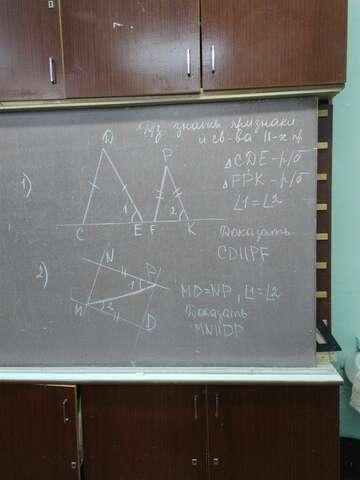 Дз знать признаки
и св-ва ||-х пр
1)
D
P
1
2
C
E
F
K
△CDE - р/б
△FPK - р/б
∠1=∠2
Доказать
CD||PF
2)
N
P
1
M
2
D
MD=NP, ∠1=∠2
Доказать
MN||DP